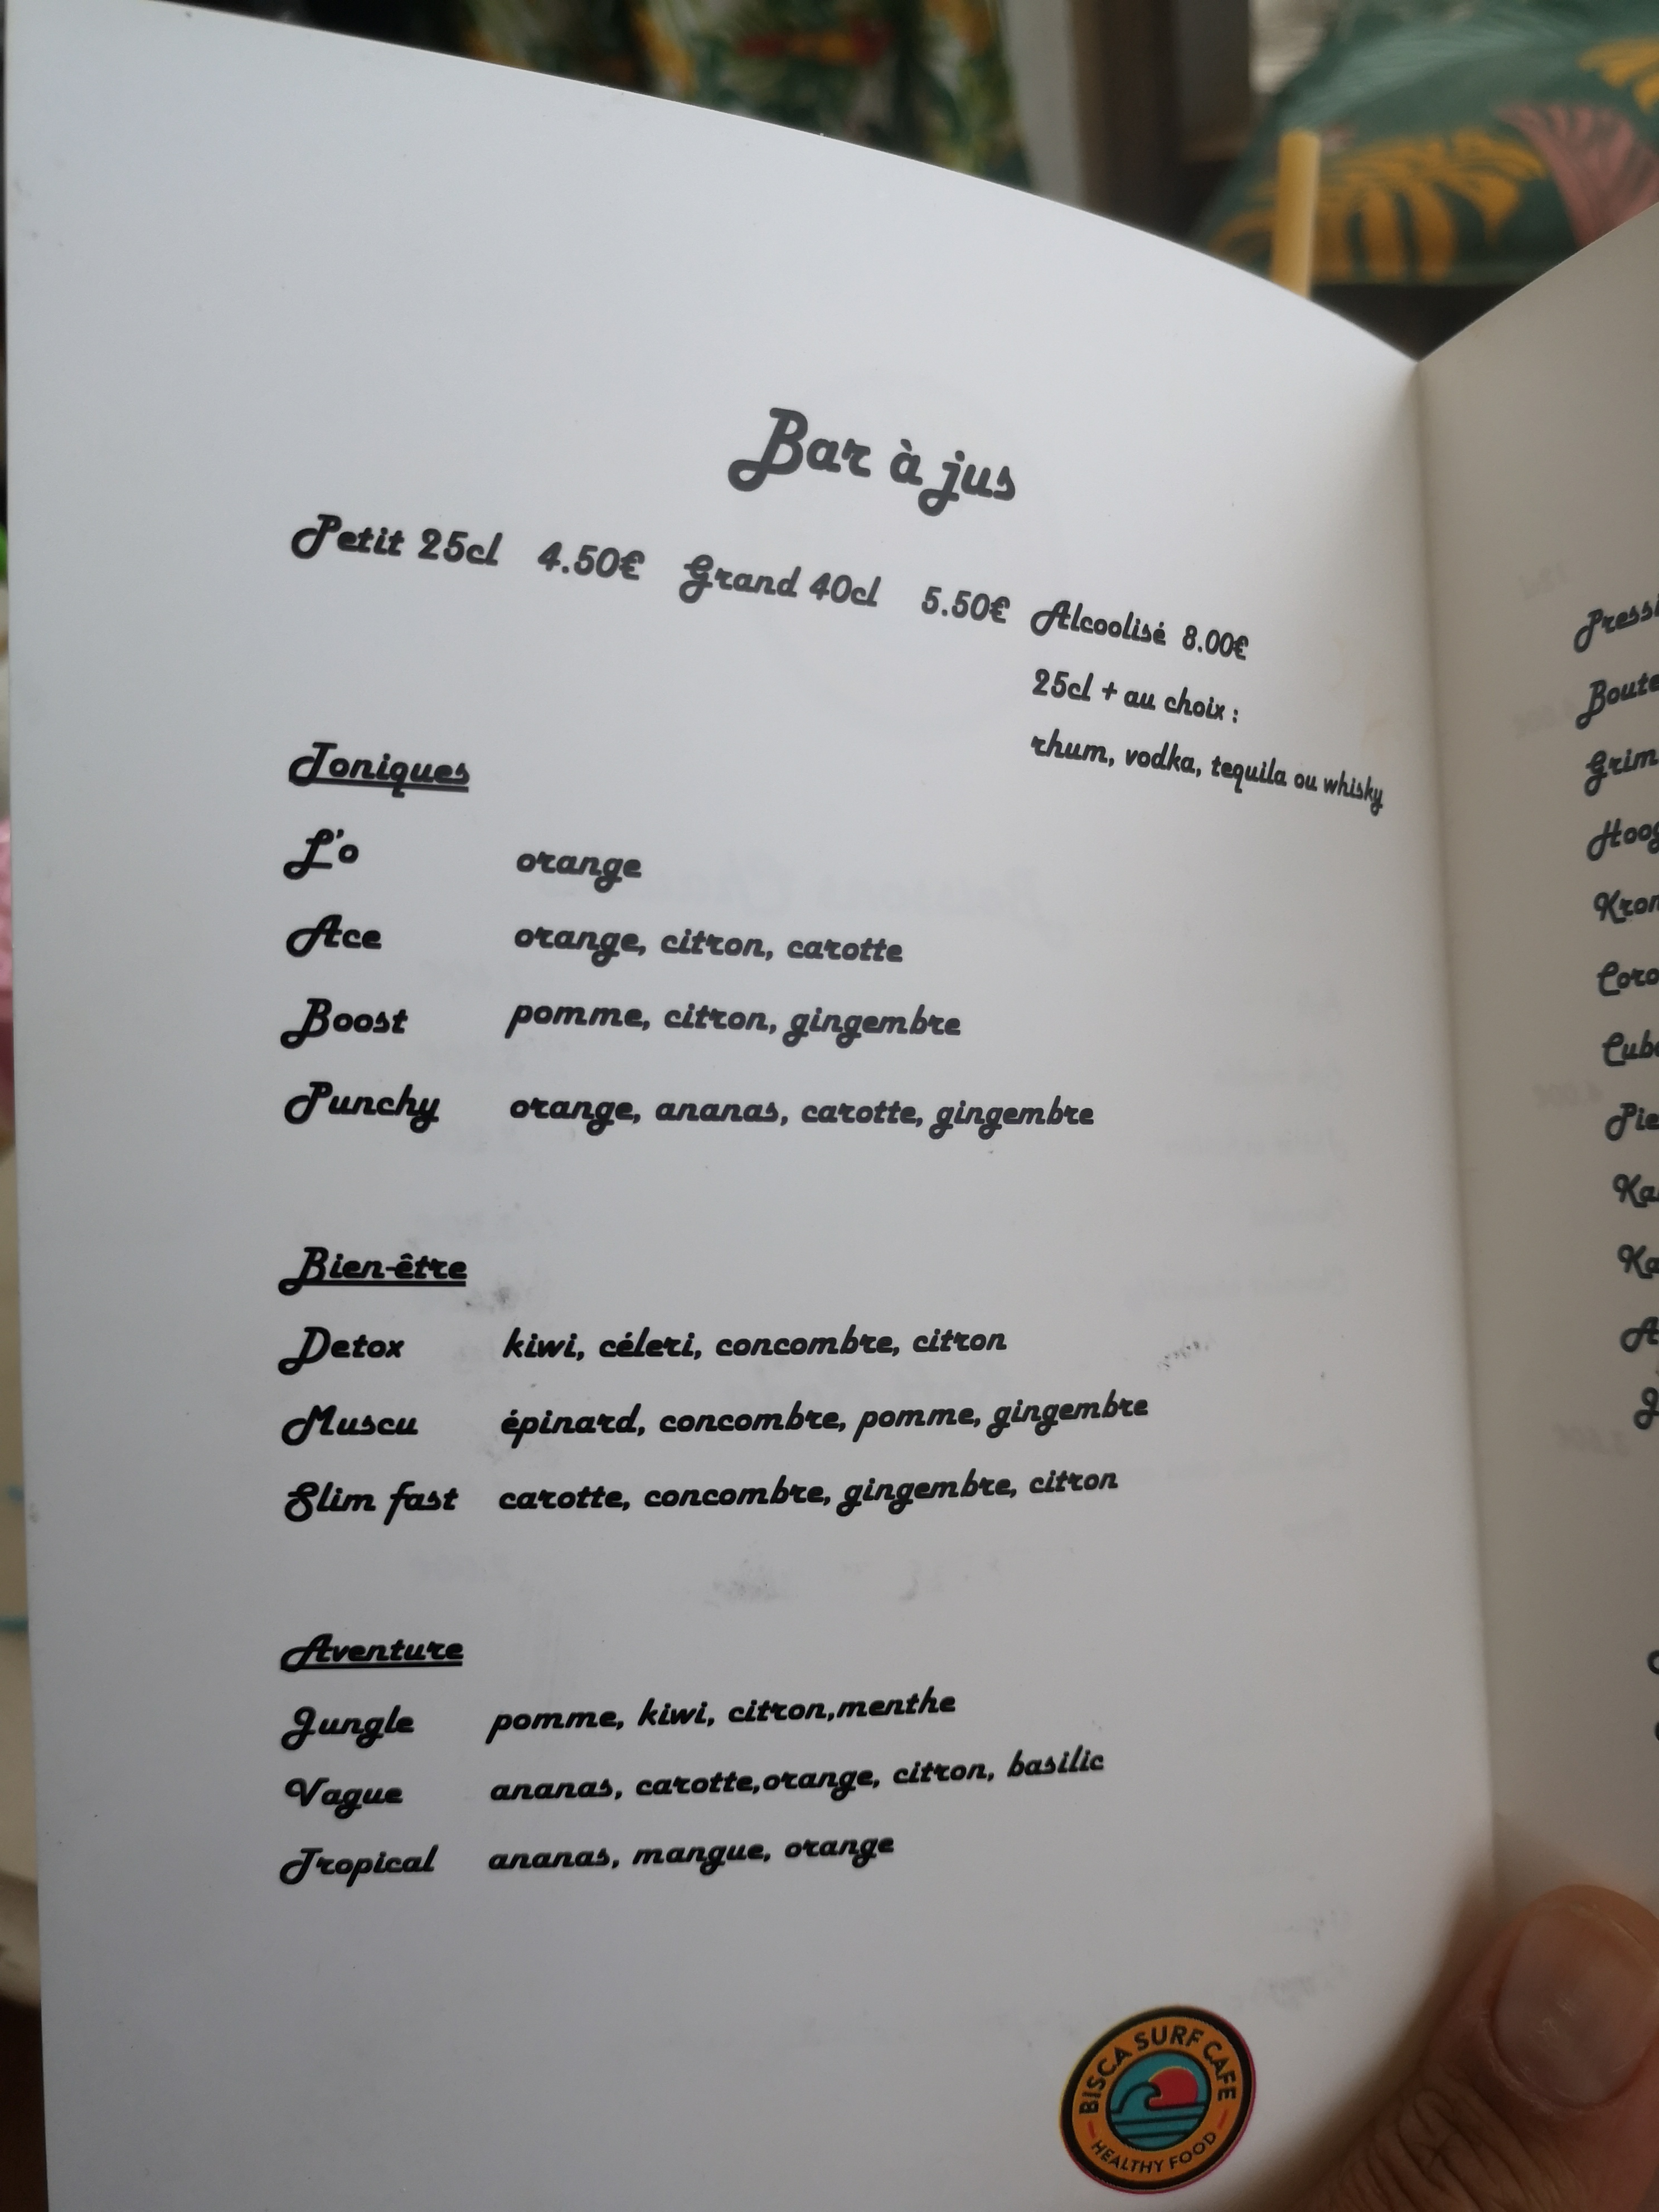 Bar à jus
Petit 25cl 4.50€ Grand 40cl 5.50€ Alcoolisé 8.00€
25cl + au choix :
rhum, vodka, tequila ou whisky
Toniques
L'o orange
Ace orange, citron, carotte
Boost pomme, citron, gingembre
Punchy orange, ananas, carotte, gingembre
Bien-être
Detox kiwi, céleri, concombre, citron
Muscu épinard, concombre, pomme, gingembre
Slim fast carotte, concombre, gingembre, citron
Aventure
Jungle pomme, kiwi, citron,menthe
Vague ananas, carotte,orange, citron, basilic
Tropical ananas, mangue, orange
BISCA SURF CAFE
HEALTHY FOOD